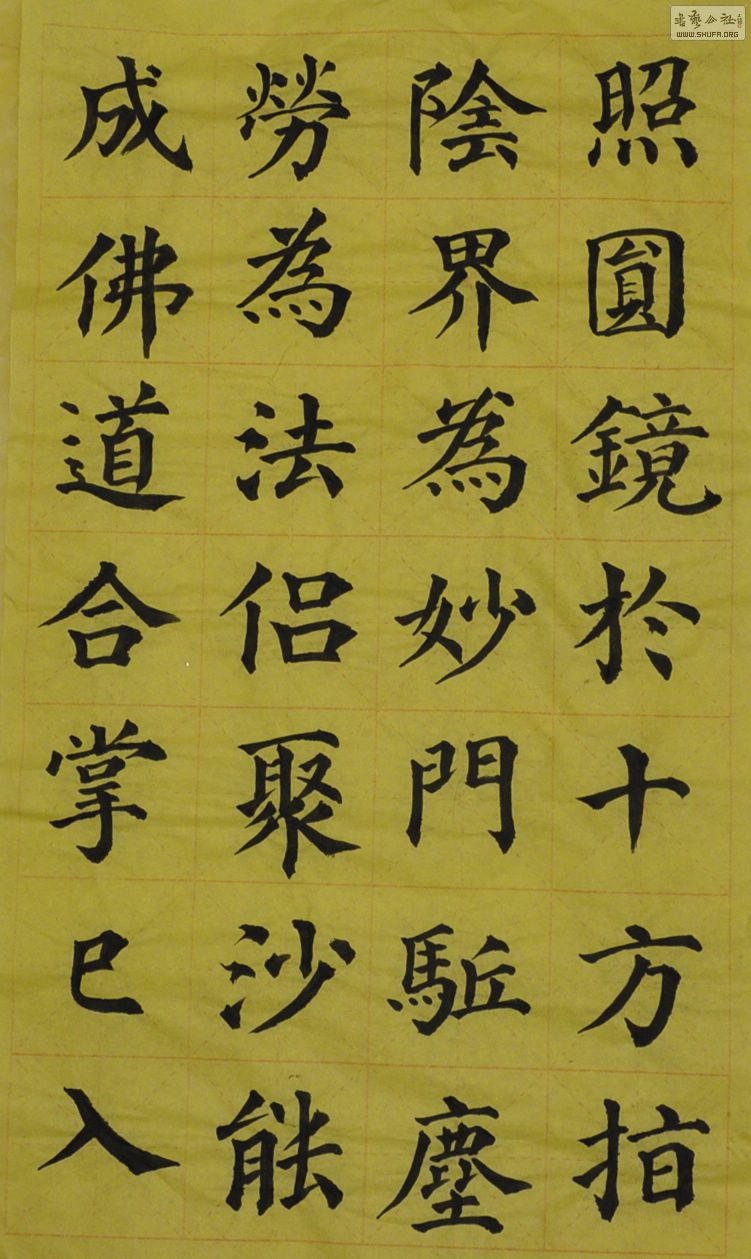 照圓鏡於十方指
陰界為妙門駈塵
勞為法侶聚沙能
成佛道合掌已入
WWW.SHUFA.ORG